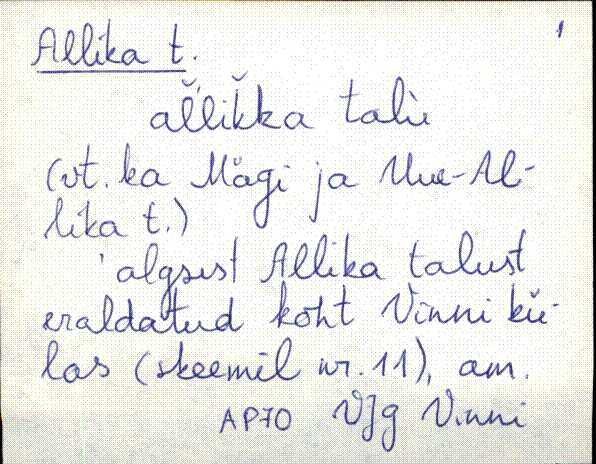 1
Allika t.
al̆likka talù
(vt. ka Mägi ja Uue-Al-
lika t.)
'algsest Allika talust
eraldatud koht Vinni kü-
las (skeemil nr. 11), am.
AP70 VJg Vinni